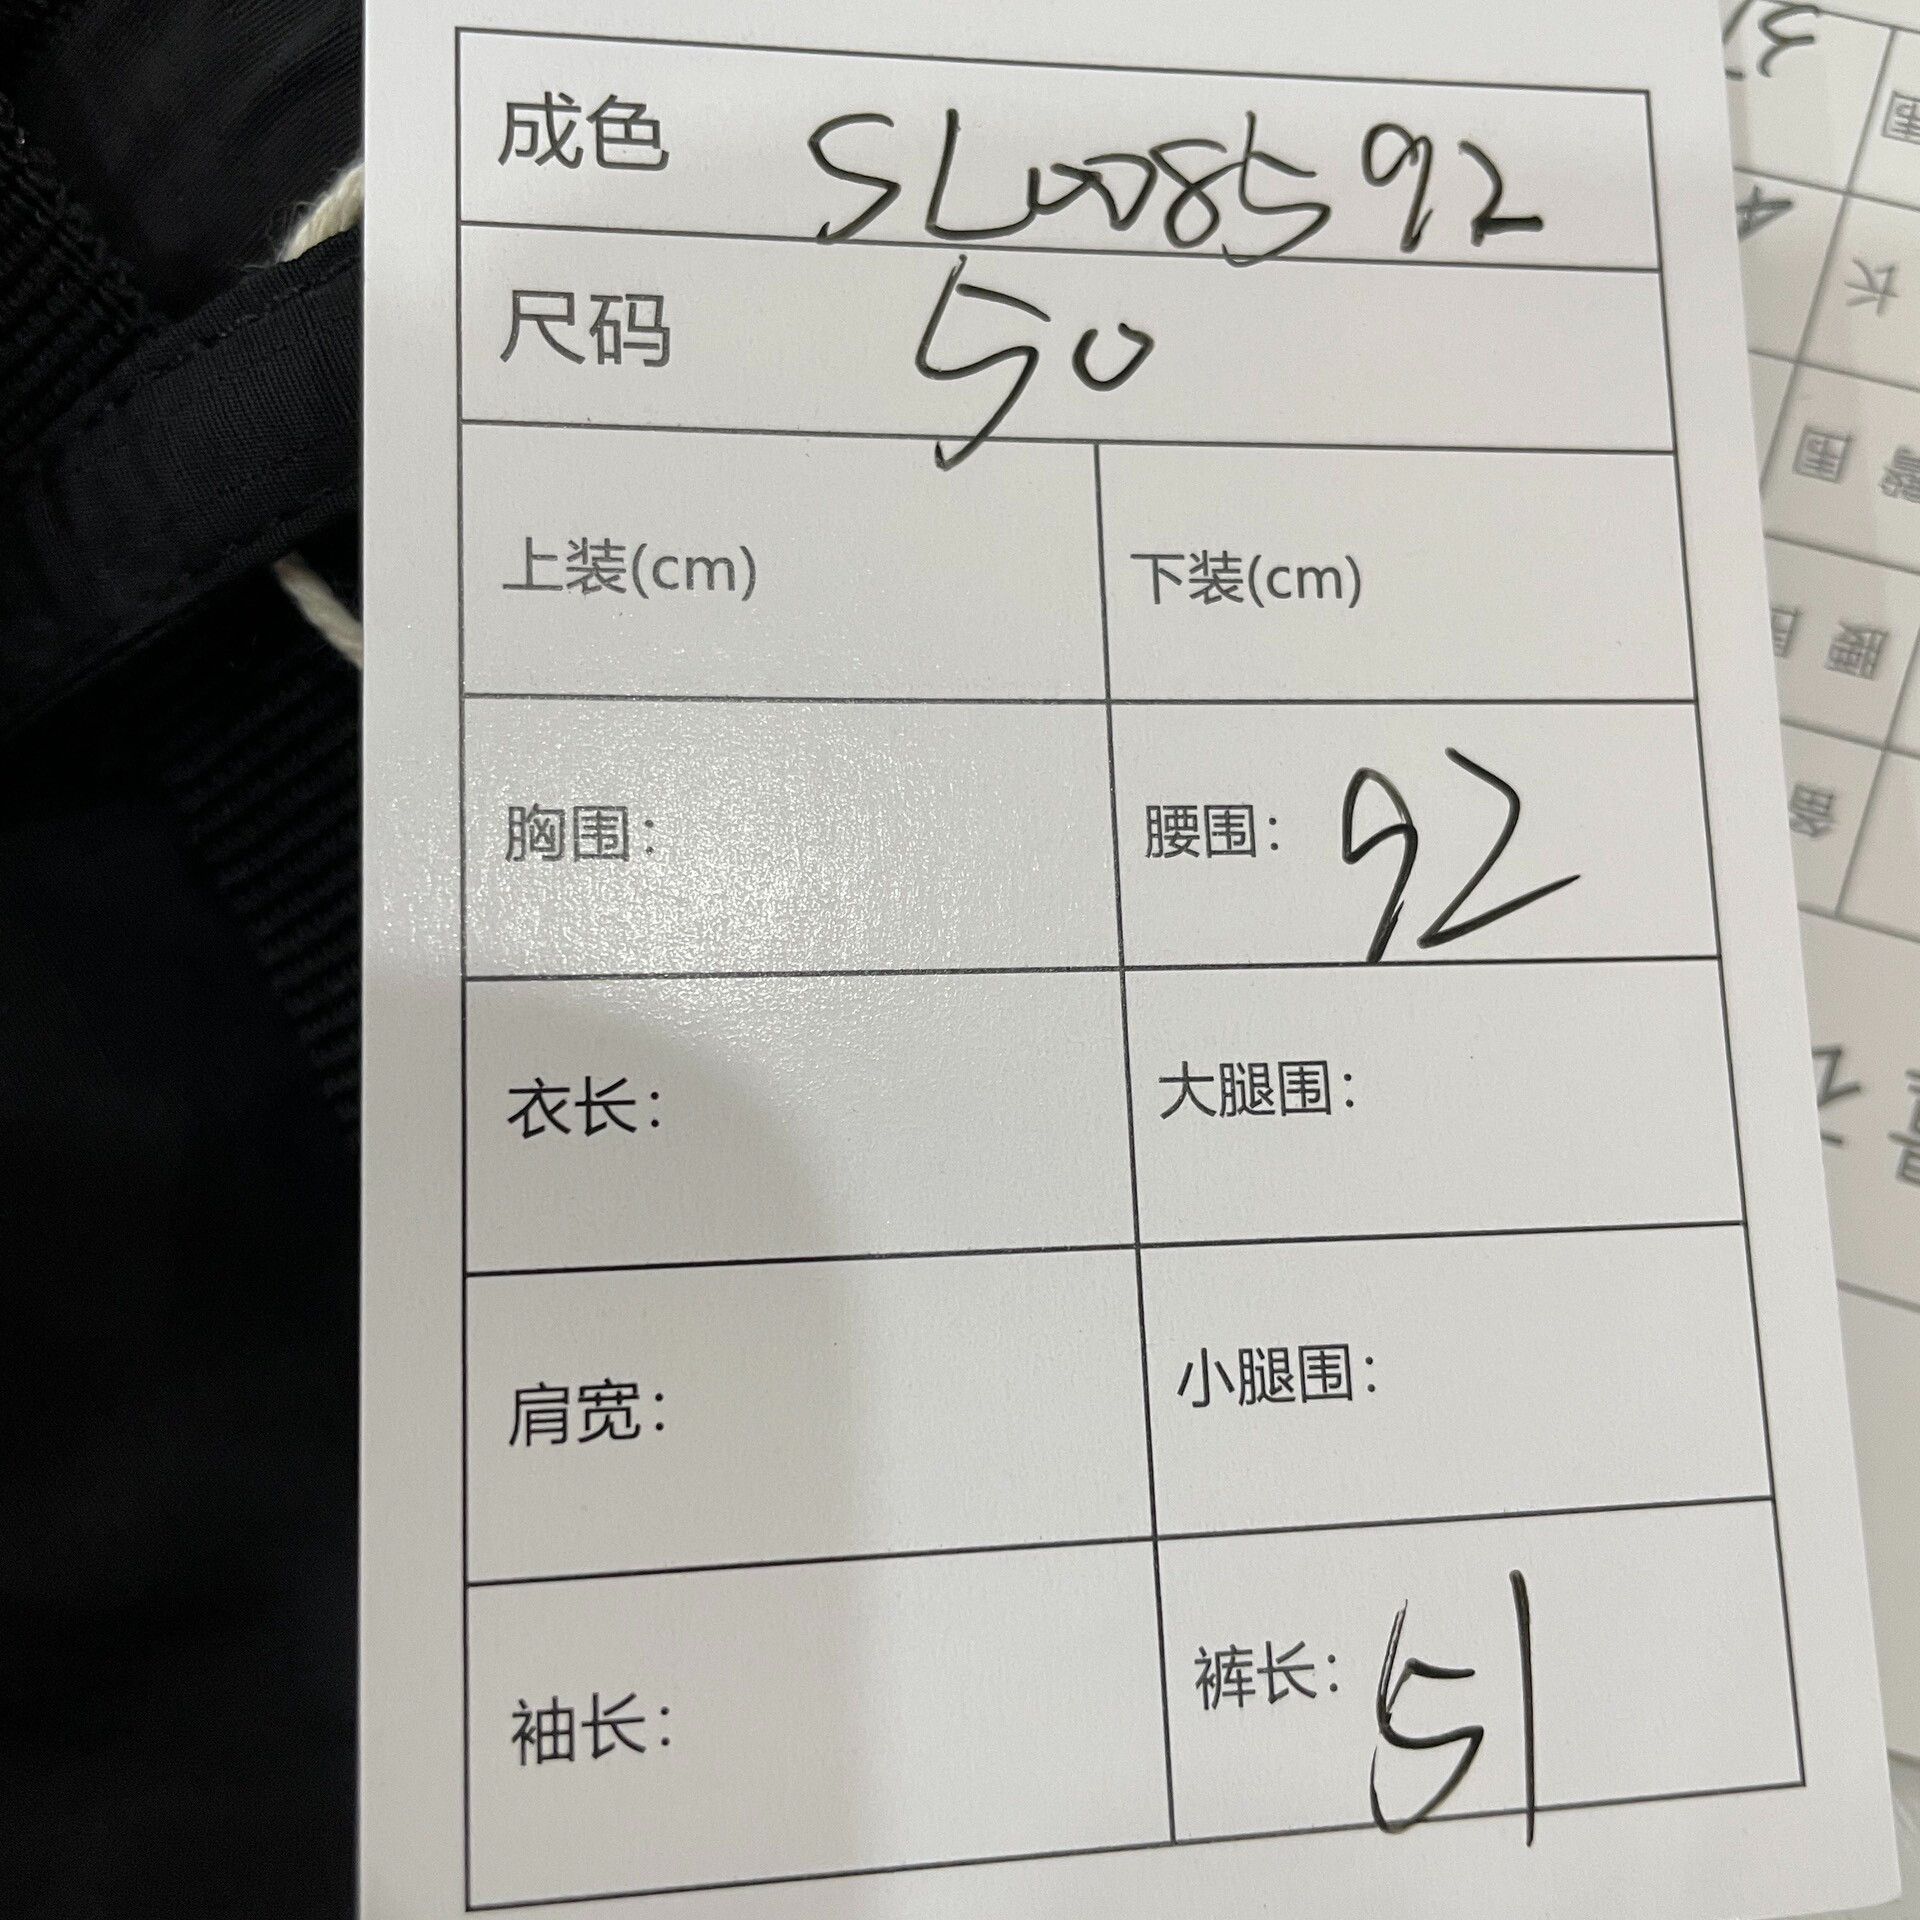 成色 SL008592
尺码 50
上装(cm) 下装(cm)
胸围： 腰围：92
衣长： 大腿围：
肩宽： 小腿围：
袖长： 裤长：51
围
长
围 臂
围 腰